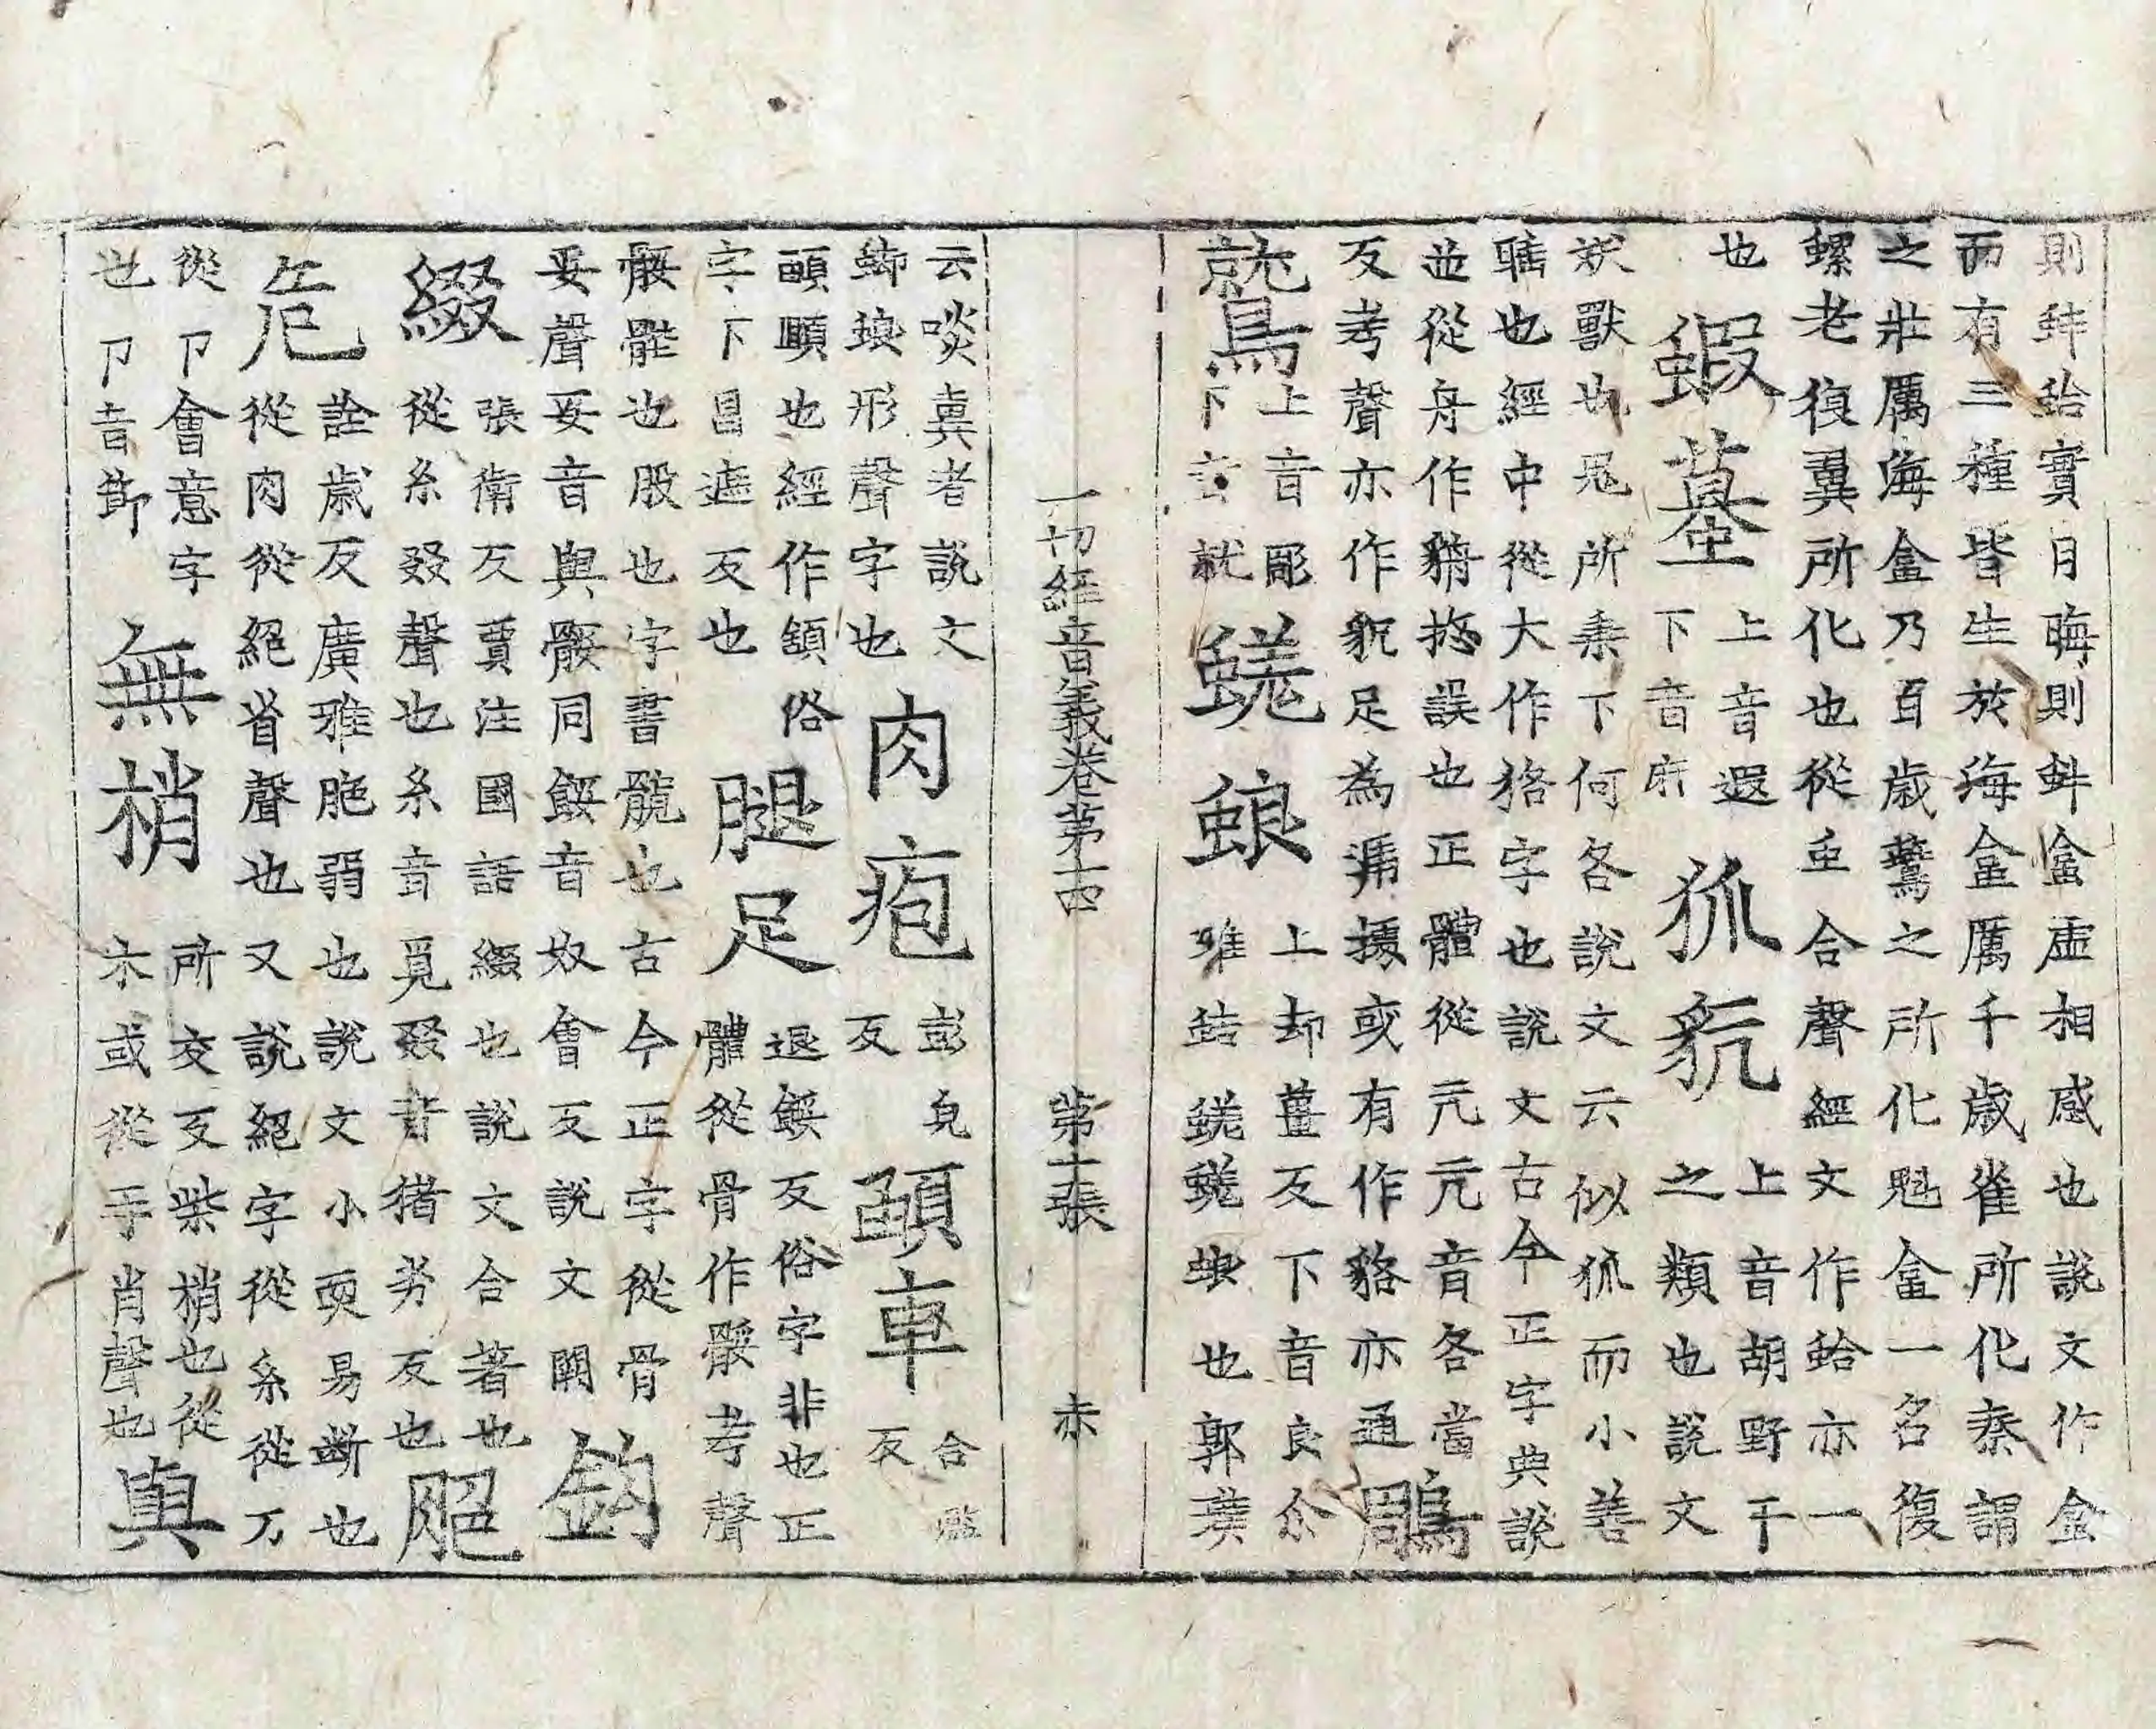 則蚌蛤實月晦則蚌盒虛相感也說文作盒
而有三種皆生於海盒厲千歲雀所化秦謂
之壯厲海盒乃百歲鷰之所化魁盒一名復
螺老復翼所化也從虫合聲經文作蛤亦一
也
蝦蟇
上音遐
下音麻
狐貁
上音胡野干
之類也說文
祆獸也鬼所乘下何各說文云似狐而小善
睡也經中從犬作狢字也說文古今正字典說
並從舟作貈捴誤也正體從亢亢音各當
反考聲亦作貌足為據或有作貉亦通
鵰
鷲
上音彫
下音就
蜣蜋
上却薑反下音良尒
雅蛣蜣蜣蜋也郭璞
一切經音義卷第十四 第十張 赤
云啖糞者說文
蜣蜋形聲字也
肉疱
彭皃
反
頤車
合濫
反
頤頷也經作頷俗
字下昌遮反也
腿足
退餒反俗字非也正
體從骨作骽考聲
骽髀也股也字書髖也古今正字從骨
妥聲妥音與骽同餒音奴會反說文闕
鈎
綴
張衛反賈注國語綴也說文合著也
從糸叕聲也糸音覓叕音猪劣反也
脃
危
詮歲反廣雅脃弱也說文小耎易斷也
從肉從絕省聲也又說絕字從糸從刀
從卪會意字
也卪音節
無梢
所交反柴梢也從
木或從手肖聲也
真